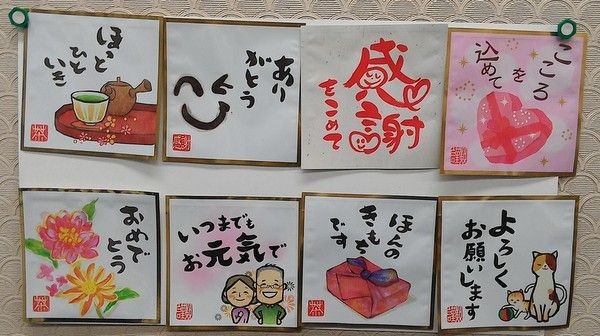 ほっと
ひと
いき
あり
がとう
感謝
をこめて
こころ
を
込めて
おめで
とう
いつまでも
お元気で
ほんの
きもち
です
よろしく
お願いします